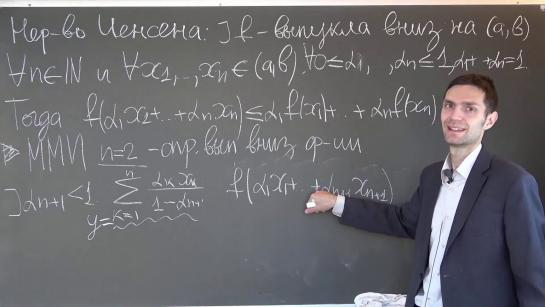 Нер-во Йенсена: ] f - выпукла вниз на (a,b)
∀n∈ℕ и ∀x₁,..,xₙ∈(a,b). ∀0≤α₁, ,αₙ≤1,α₁+ +αₙ=1.
Тогда f(α₁x₁+..+αₙxₙ)≤α₁f(x₁)+..+αₙf(xₙ)
▷ ММИ n=2 - опр. вып вниз ф-ии
]αₙ₊₁<1. y=∑ₖ₌₁ⁿ αₖxₖ/(1-αₙ₊₁) f(α₁x₁+..+αₙ₊₁xₙ₊₁)